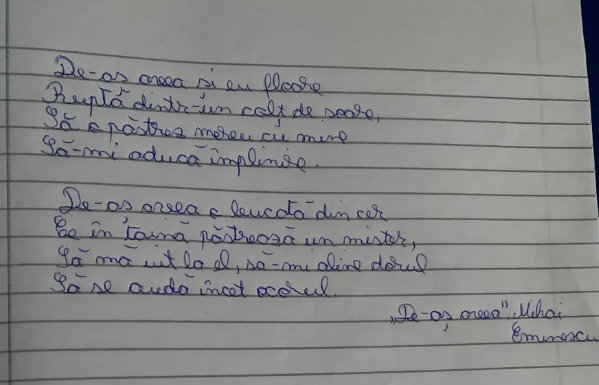 De-aș avea și eu floare
Ruptă dintr-un colț de soare,
Să o păstrez mereu cu mine
Să-mi aducă împlinire.
De-aș avea o bucată din cer
Ce în taină păstrează un mister,
Să mă uit la el, să-mi aline dorul
Să se audă încet acorul.
"De-aș avea", Mihai
Eminescu